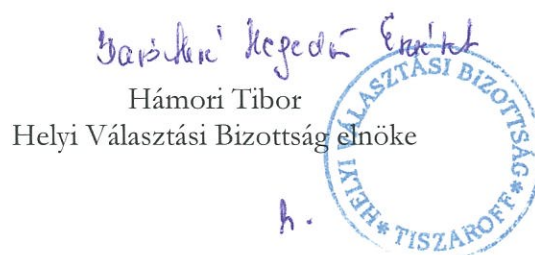 Hegedűs
Hámori Tibor
Helyi Választási Bizottság elnöke
h.
HELYI VÁLASZTÁSI BIZOTTSÁG * TISZAROFF *